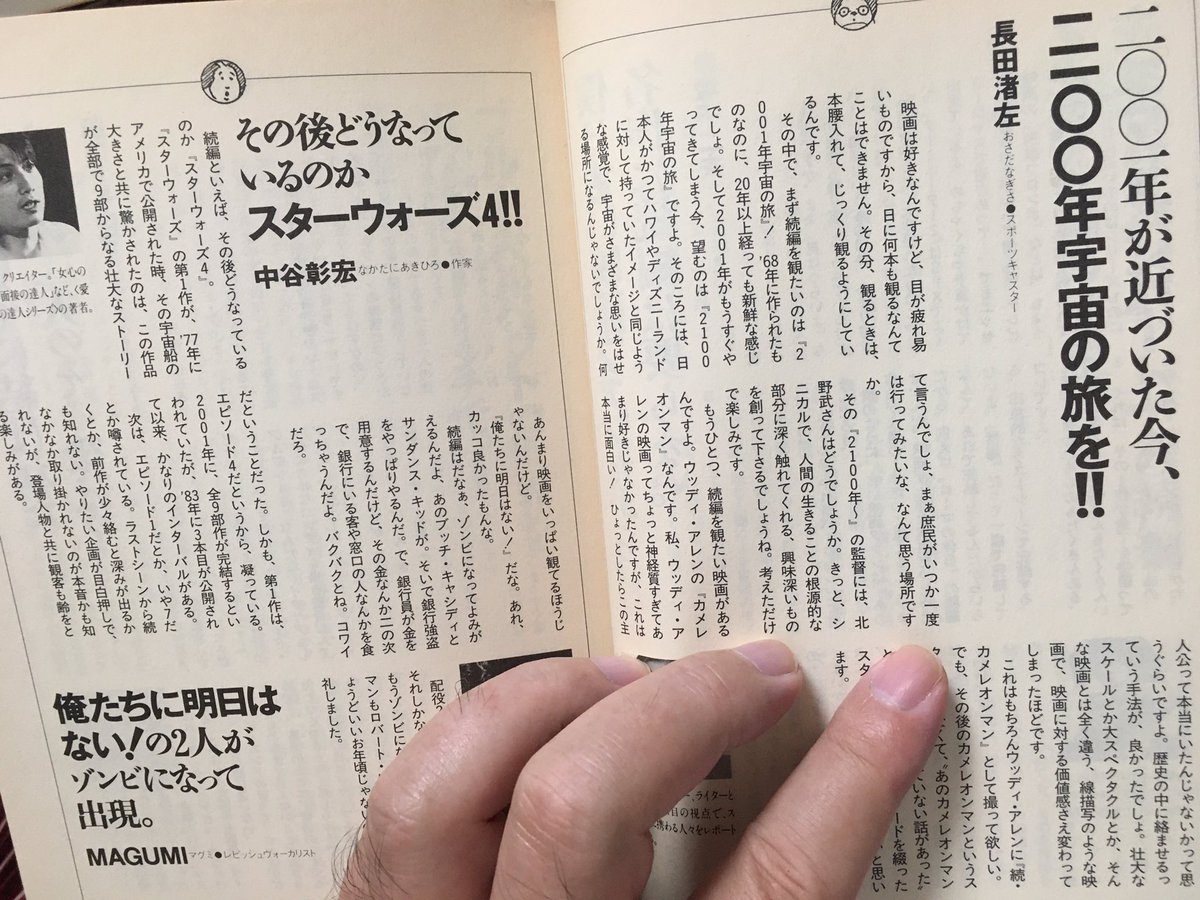 二〇〇一年が近づいた今、
二一〇〇年宇宙の旅を!!
長田渚左 おさだなぎさ●スポーツキャスター
映画は好きなんですけど、目が疲れ易
いものですから、日に何本も観るなんて
ことはできません。その分、観るときは、
本腰入れて、じっくり観るようにしてい
るんです。
その中で、まず続編を観たいのは『2
001年宇宙の旅』!'68年に作られたも
のなのに、20年以上経っても新鮮な感じ
でしょ。そして2001年がもうすぐや
ってきてしまう今、望むのは『2100
年宇宙の旅』ですよ。そのころには、日
本人がかつてハワイやディズニーランド
に対して持っていたイメージと同じよう
な感覚で、宇宙がさまざまな思いをはせ
る場所になるんじゃないでしょうか。何
て言うんでしょ、まぁ庶民がいつか一度
は行ってみたいな、なんて思う場所です
か。
その『2100年〜』の監督には、北
野武さんはどうでしょうか。きっと、シ
ニカルで、人間の生きることの根源的な
部分に深く触れてくれる、興味深いもの
を創って下さるでしょうね。考えただけ
で楽しみです。
もうひとつ、続編を観たい映画がある
んですよ。ウッディ・アレンの『カメレ
オンマン』なんです。私、ウッディ・ア
レンの映画ってちょっと神経質すぎてあ
まり好きじゃなかったんですが、これは
本当に面白い!ひょっとしたらこの主
人公って本当にいたんじゃないかって思
うぐらいですよ。歴史の中に絡ませるっ
ていう手法が、良かったでしょ。壮大な
スケールとか大スペクタクルとか、そん
な映画とは全く違う、線描写のような映
画で、映画に対する価値感さえ変わって
しまったほどです。
これはもちろんウッディ・アレンに『続・
カメレオンマン』として撮って欲しい。
でも、その後のカメレオンマンというス
なくて、"あのカメレオンマン
ていない話があった"
ードを綴った
と思い
ます。
ライターと
目の視点で、ス
携わる人々をレポート
その後どうなって
いるのか
スターウォーズ4!!
中谷彰宏 なかたにあきひろ●作家
続編といえば、その後どうなっている
のか『スターウォーズ4』。
『スターウォーズ』の第1作が、'77年に
アメリカで公開された時、その宇宙船の
大きさと共に驚かされたのは、この作品
が全部で9部からなる壮大なストーリー
だということだった。しかも、第1作は、
エピソード4だというから、凝っている。
2001年に、全9部作が完結するとい
われていたが、'83年に3本目が公開され
て以来、かなりのインターバルがある。
次は、エピソード1だとか、いや7だ
とか噂されている。ラストシーンから続
くとか、前作が少々絡むと深みが出るか
も知れない。やりたい企画が目白押しで、
なかなか取り掛かれないのが本音かも知
れないが、登場人物と共に観客も齢をと
る楽しみがある。
クリエイター。「女心の
「面接の達人」など、〈愛
の達人シリーズ〉の著者。
俺たちに明日は
ない!の2人が
ゾンビになって
出現。
MAGUMI マグミ●レピッシュヴォーカリスト
あんまり映画をいっぱい観てるほうじ
ゃないんだけど。
『俺たちに明日はない!』だな。あれ、
カッコ良かったもんな。
続編はだなぁ、ゾンビになってよみが
えるんだよ、あのブッチ・キャシディと
サンダンス・キッドが。そいで銀行強盗
をやっぱりやるんだ。で、銀行員が金を
用意するんだけど、その金なんか二の次
で、銀行にいる客や窓口の人なんかを食
っちゃうんだよ。バクバクとね。コワイ
だろ。
配役?
それしかな
もうゾンビに
マンもロバート・
ようどいいお年頃じゃない
礼しました。